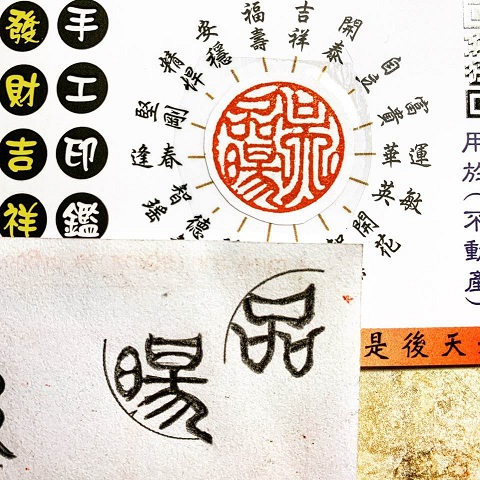 手工印鑑
發財吉祥
逢春
堅剛
精悍
安穩
福壽
吉祥
開泰
自立
富貴
華運
英敏
開花
智瑞
德
用於(不動產)
是後天
品